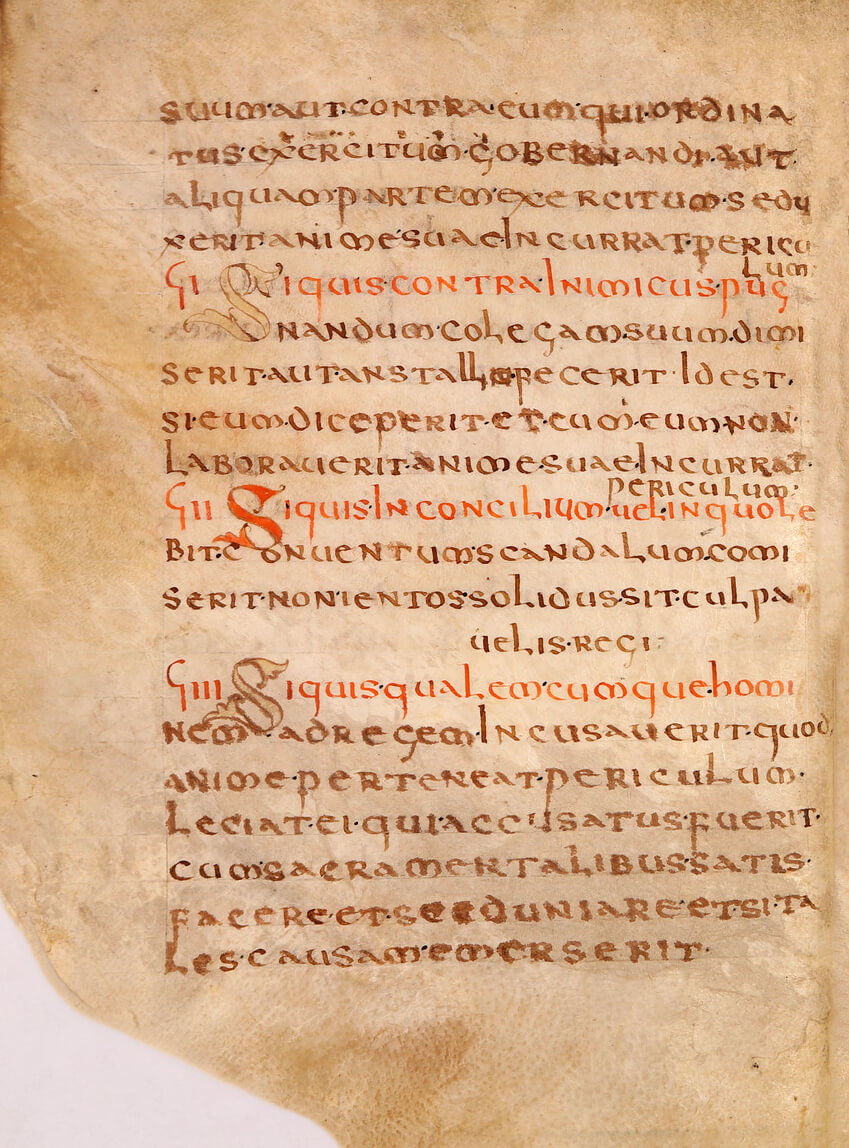 SUUM·AUT·CONTRA·EUM·QUI·ORDINA
TUS·EXERCITUM·GOBERNANDI·AUT·
ALIQUAM·PARTEM·EXERCITUM·SEDU
XERIT·ANIME·SUAE·INCURRAT·PERICU
LUM·
ϚI SIQUIS·CONTRA·INIMICUS·PUG
NANDUM·COLEGAM·SUUM·DIMI
SERIT·AUT·ANSTALLE·FECERIT·IDEST·
SI·EUM·DICEPERIT·ET·CUM·EUM·NON·
LABORAUERIT·ANIME·SUAE·INCURRAT·
PERICULUM·
ϚII SIQUIS·IN CONCILIUM·UEL·IN QUOLE
BIT·CONUENTUM·SCANDALUM·COMI
SERIT·NONIENTOS·SOLIDUS·SIT·CULPA
UELIS·REGI·
ϚIII SIQUIS·QUALEM·CUMQUE·HOMI
NEM·AD REGEM·INCUSAUERIT·QUOD
ANIME·PERTENEAT·PERICULUM·
LECIAT·EI·QUI·ACCUSATUS·FUERIT·
CUM·SACRAMENTALIBUS·SATIS·
FACERE·ET·SE EDUNIARE·ET·SI·TA
LES·CAUSAM·EMERSERIT·